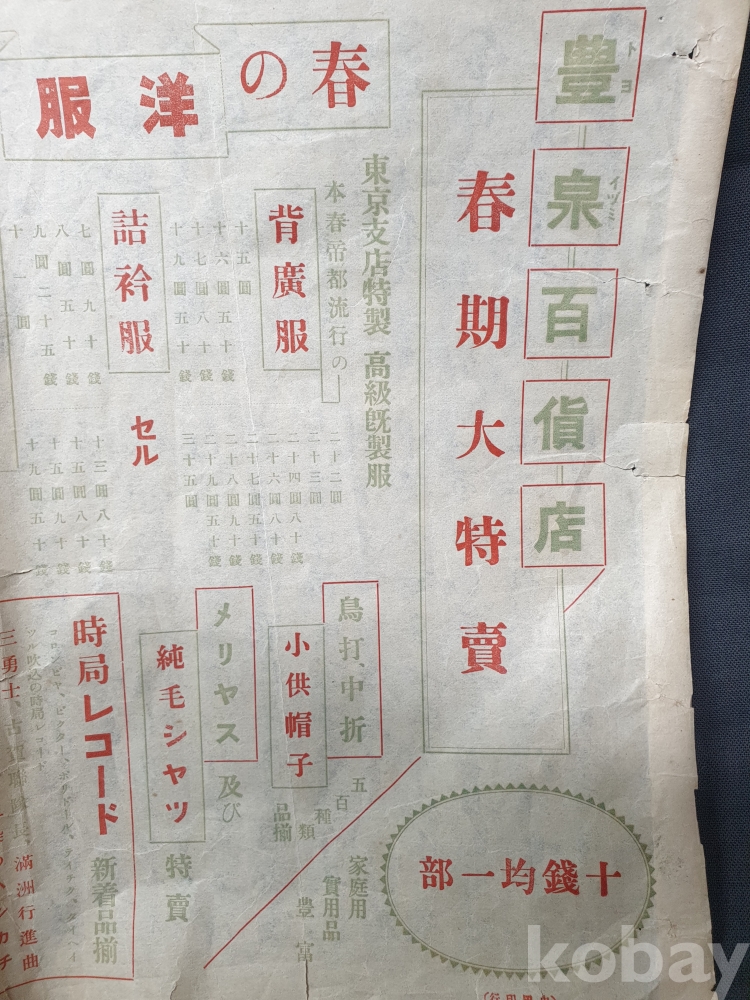 豊泉百貨店
トヨ
イヅミ
春期大特賣
十錢均一部
春の
洋服
東京支店特製 高級既製服
本春帝都流行の
背廣服
十五圓
十六圓五十錢
十七圓八十錢
十九圓五十錢
二十二圓
二十三圓
二十四圓八十錢
二十六圓八十錢
二十七圓五十錢
二十八圓九十錢
二十九圓五十錢
三十五圓
詰衿服
七圓九十錢
八圓五十錢
九圓二十五錢
十一圓
セル
十三圓八十錢
十五圓八十錢
十五圓九十錢
十九圓五十錢
鳥打、中折
小供帽子
五百種類
品揃
家庭用
實用品
豊富
メリヤス及び
純毛シヤツ特賣
時局レコード新着品揃
コロンビヤ、ビクター、ポリドール、テイチク、タイヘイ
ツル吹込の時局レコード
三勇士、古賀聯隊長、滿洲行進曲
kobay